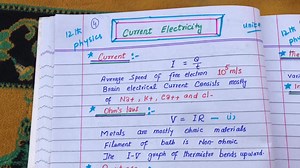 12th physics
4
Current Electricity
unit
12th
phy
* Current :-
I = Q/t
Average Speed of free electron 10⁵ m/s
Brain electrical Current Consists mostly
of Na+, K+, Ca++ and Cl-
* Ohm's law :-
V = IR
Metals are mostly ohmic materials
Filament of bulb is Non ohmic
The I-V graph of Thermister bends upward